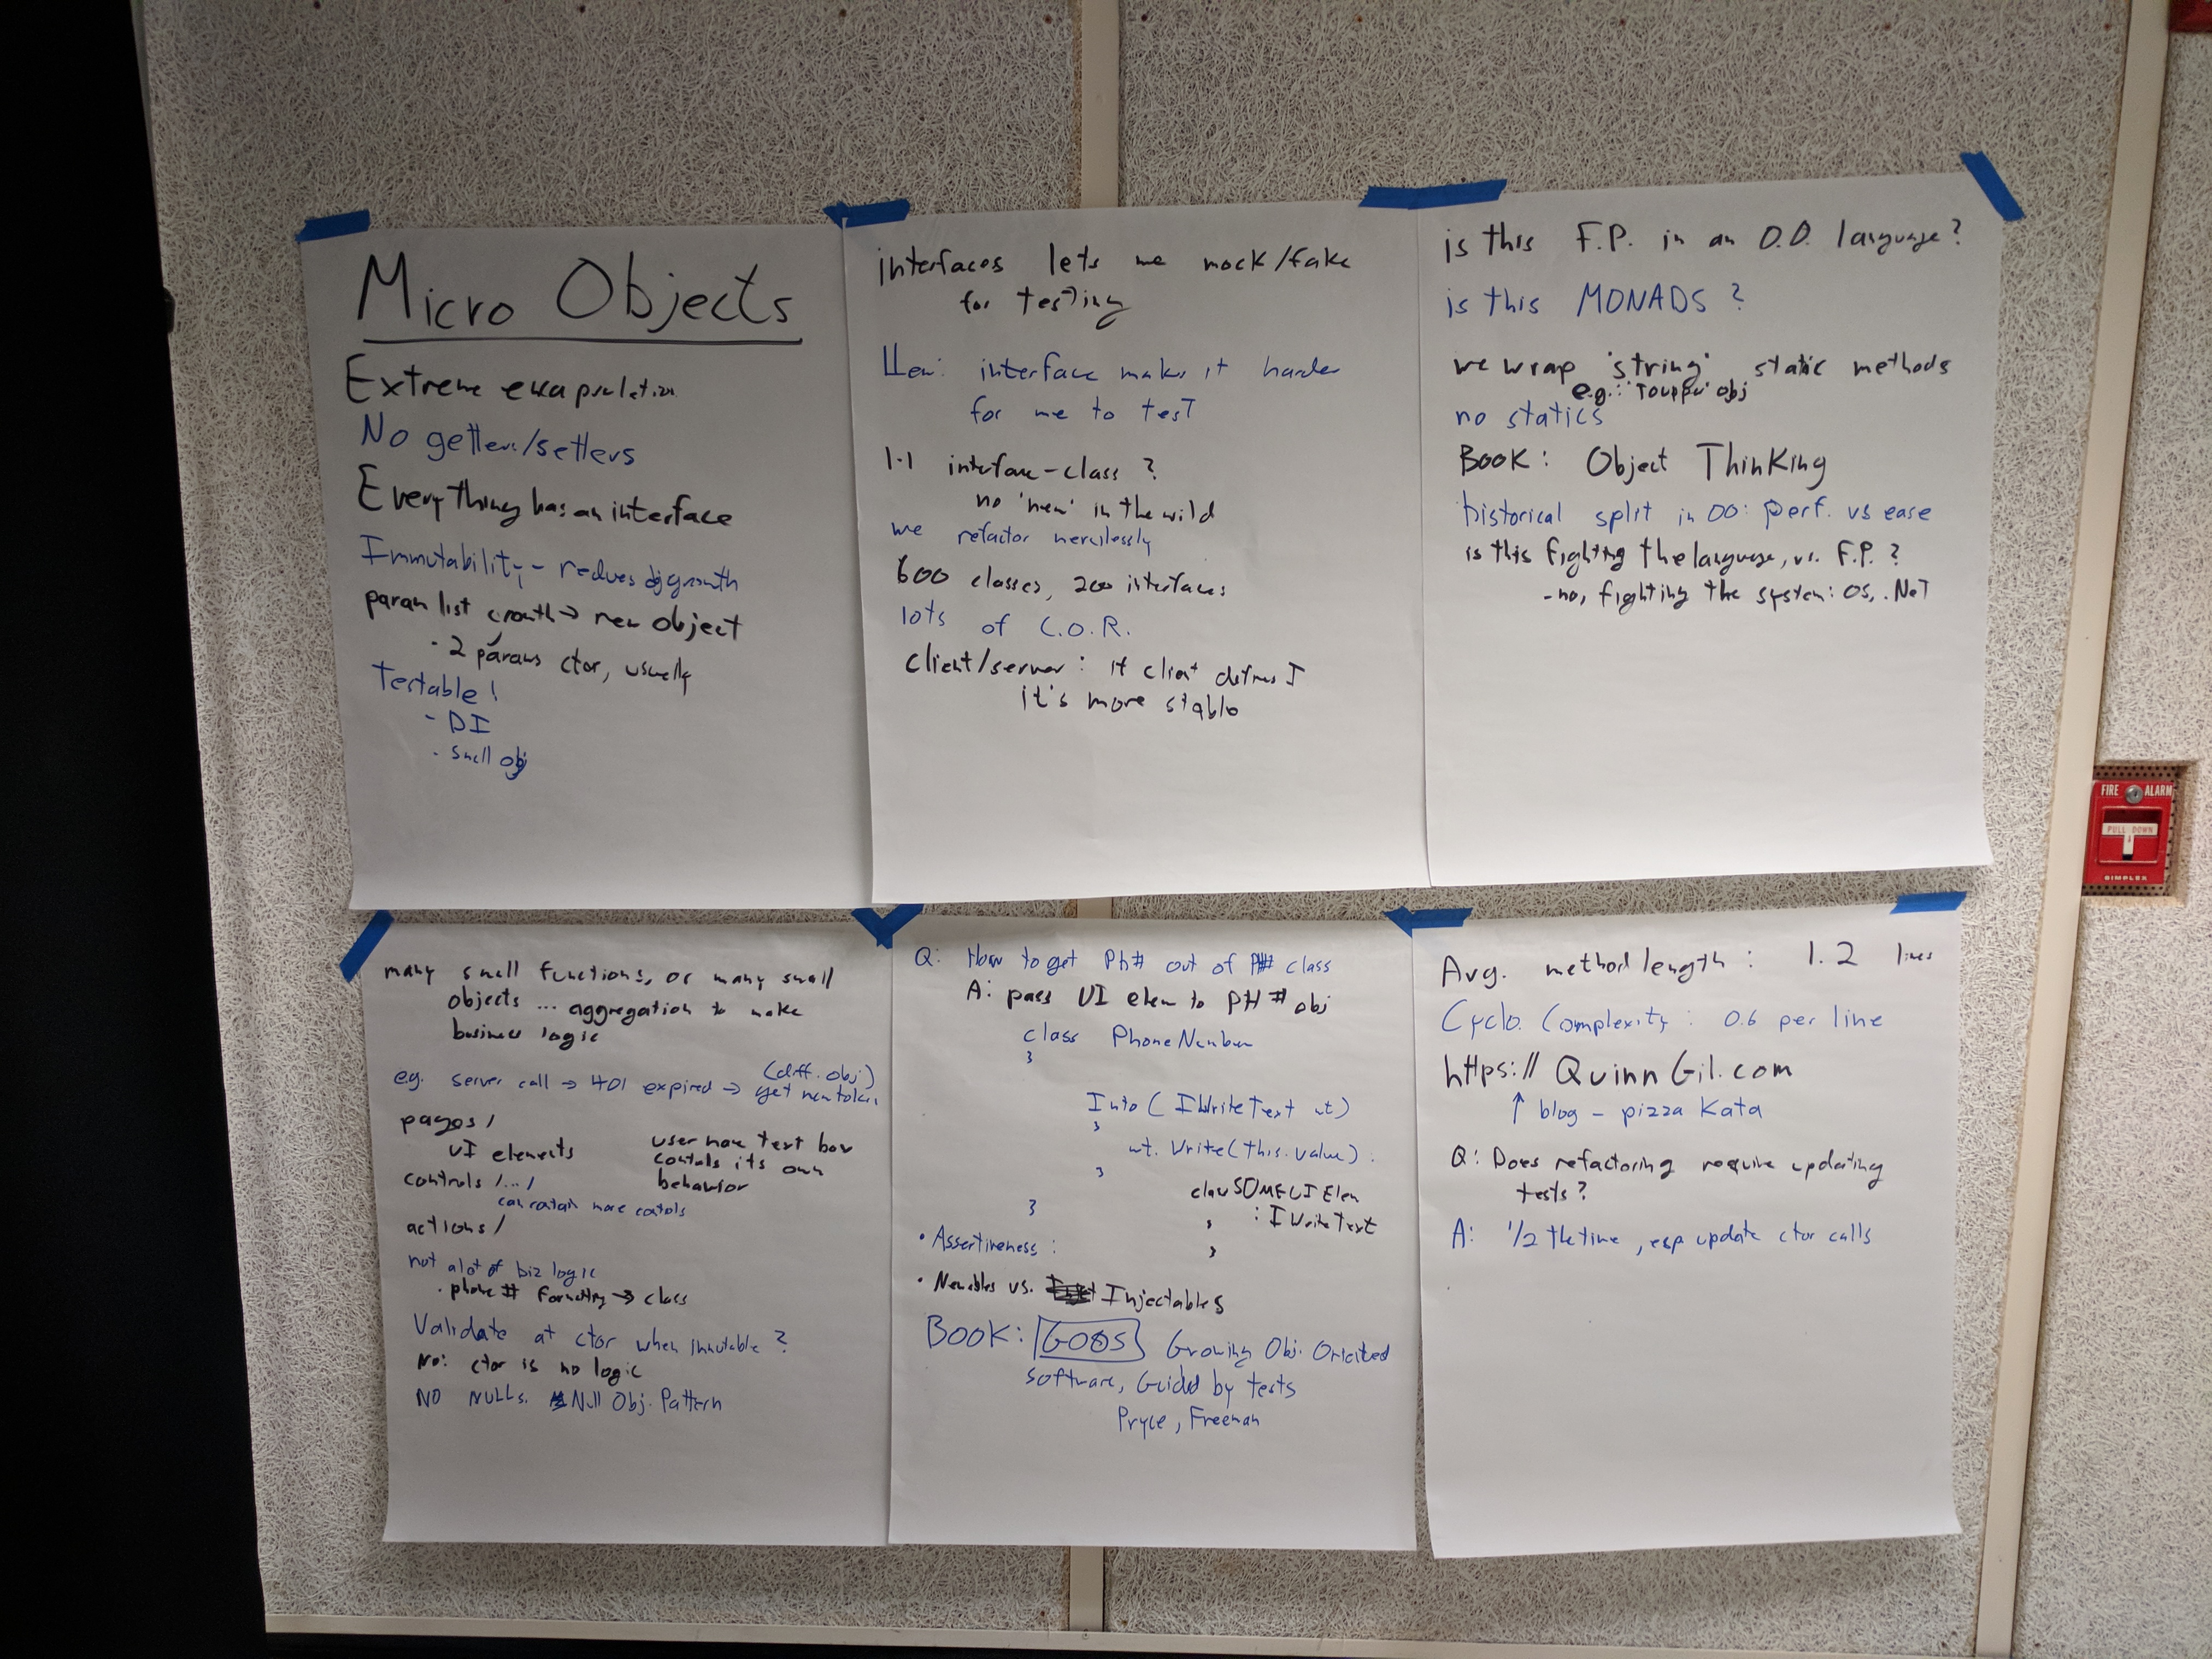 Micro Objects
Extreme encapsulation
No getters/setters
Everything has an interface
Immutability - reduces obj growth
param list growth → new object
- 2 params ctor, usually
Testable!
- DI
- small obj
interfaces lets me mock/fake
for testing
Llew: interface makes it harder
for me to test
1-1 interface-class?
no 'new' in the wild
we refactor mercilessly
600 classes, 200 interfaces
lots of C.O.R.
client/server: if client defines I
it's more stable
is this F.P. in an O.O. language?
is this MONADS?
we wrap 'string' static methods
e.g.: 'ToUpper' obj
no statics
BOOK: Object Thinking
historical split in OO: perf. vs ease
is this fighting the language, vs. F.P.?
- no, fighting the system: OS, .NeT
many small functions, or many small
objects ... aggregation to make
business logic
(diff. obj)
e.g. server call → 401 expired → get new token
pages/
UI elements
controls/.../
can contain more controls
actions/
user name text box
controls its own
behavior
not alot of biz logic
· phone # formatting → class
Validate at ctor when immutable?
No: ctor is no logic
NO NULLS. Null Obj. Pattern
Q: How to get Ph# out of P## class
A: pass UI elem to PH# obj
class PhoneNumber
{
Into(IWriteText wt)
{
wt.Write(this.value);
}
}
class SOMEUIElem
: IWriteText
{
}
· Assertiveness:
· Newables vs. Injectables
BOOK: GOOS Growing Obj. Oriented
Software, Guided by tests
Pryce, Freeman
Avg. method length: 1.2 lines
Cyclo. Complexity: 0.6 per line
https://QuinnGil.com
↑ blog - pizza Kata
Q: Does refactoring require updating
tests?
A: 1/2 the time, esp update ctor calls
FIRE ALARM
PULL DOWN
SIMPLEX